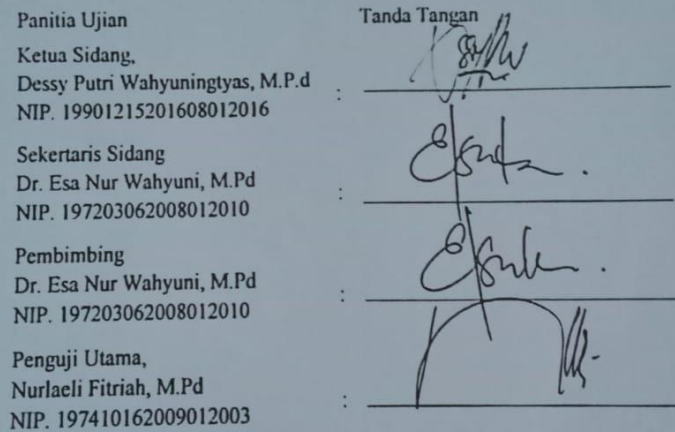 Panitia Ujian
Tanda Tangan
Ketua Sidang,
Dessy Putri Wahyuningtyas, M.P.d
:
NIP. 19901215201608012016
Sekertaris Sidang
Dr. Esa Nur Wahyuni, M.Pd
:
NIP. 197203062008012010
Pembimbing
Dr. Esa Nur Wahyuni, M.Pd
:
NIP. 197203062008012010
Penguji Utama,
Nurlaeli Fitriah, M.Pd
:
NIP. 197410162009012003